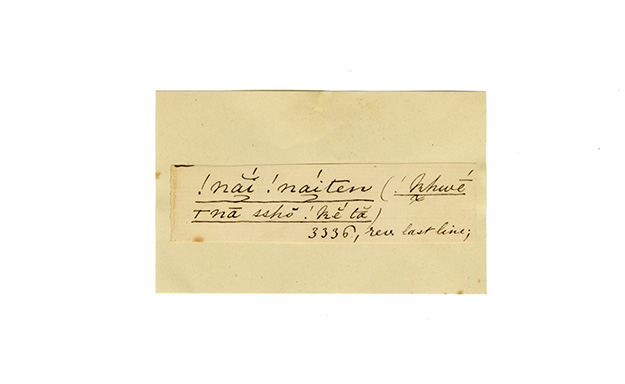 !nắĭ !náĭten (!k̲hwé
Ʇnā sshŏ !kĕ́ tă)
3336, rev. last line;